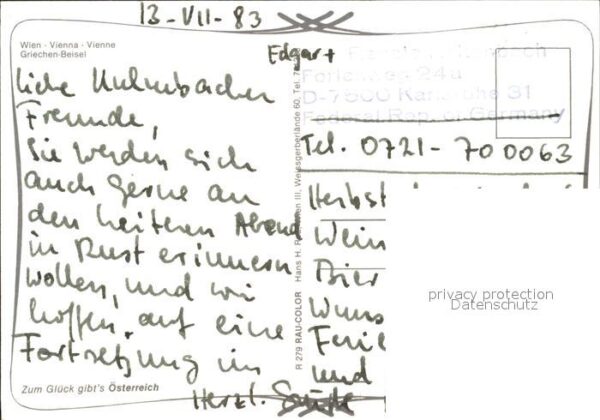 13-VII-83
Wien · Vienna · Vienne
Griechen-Beisel
Edgar +
Ferienweg 24a
D-7500 Karlsruhe 31
Federal Rep. of Germany
Tel. 0721-700063
liebe Kulmbacher
Freunde,
Sie werden sich
auch gerne an
den heiteren Abend
in Rust erinnern
wollen, und wir
hoffen auf eine
Fortsetzung im
Herbst
Wein
Bier
Wuns
Ferie
und
Herzl. Grüße
Zum Glück gibt's Österreich
R 279 RAU-COLOR Hans H. Wien III, Weissgerberlände 60, Tel.
privacy protection
Datenschutz